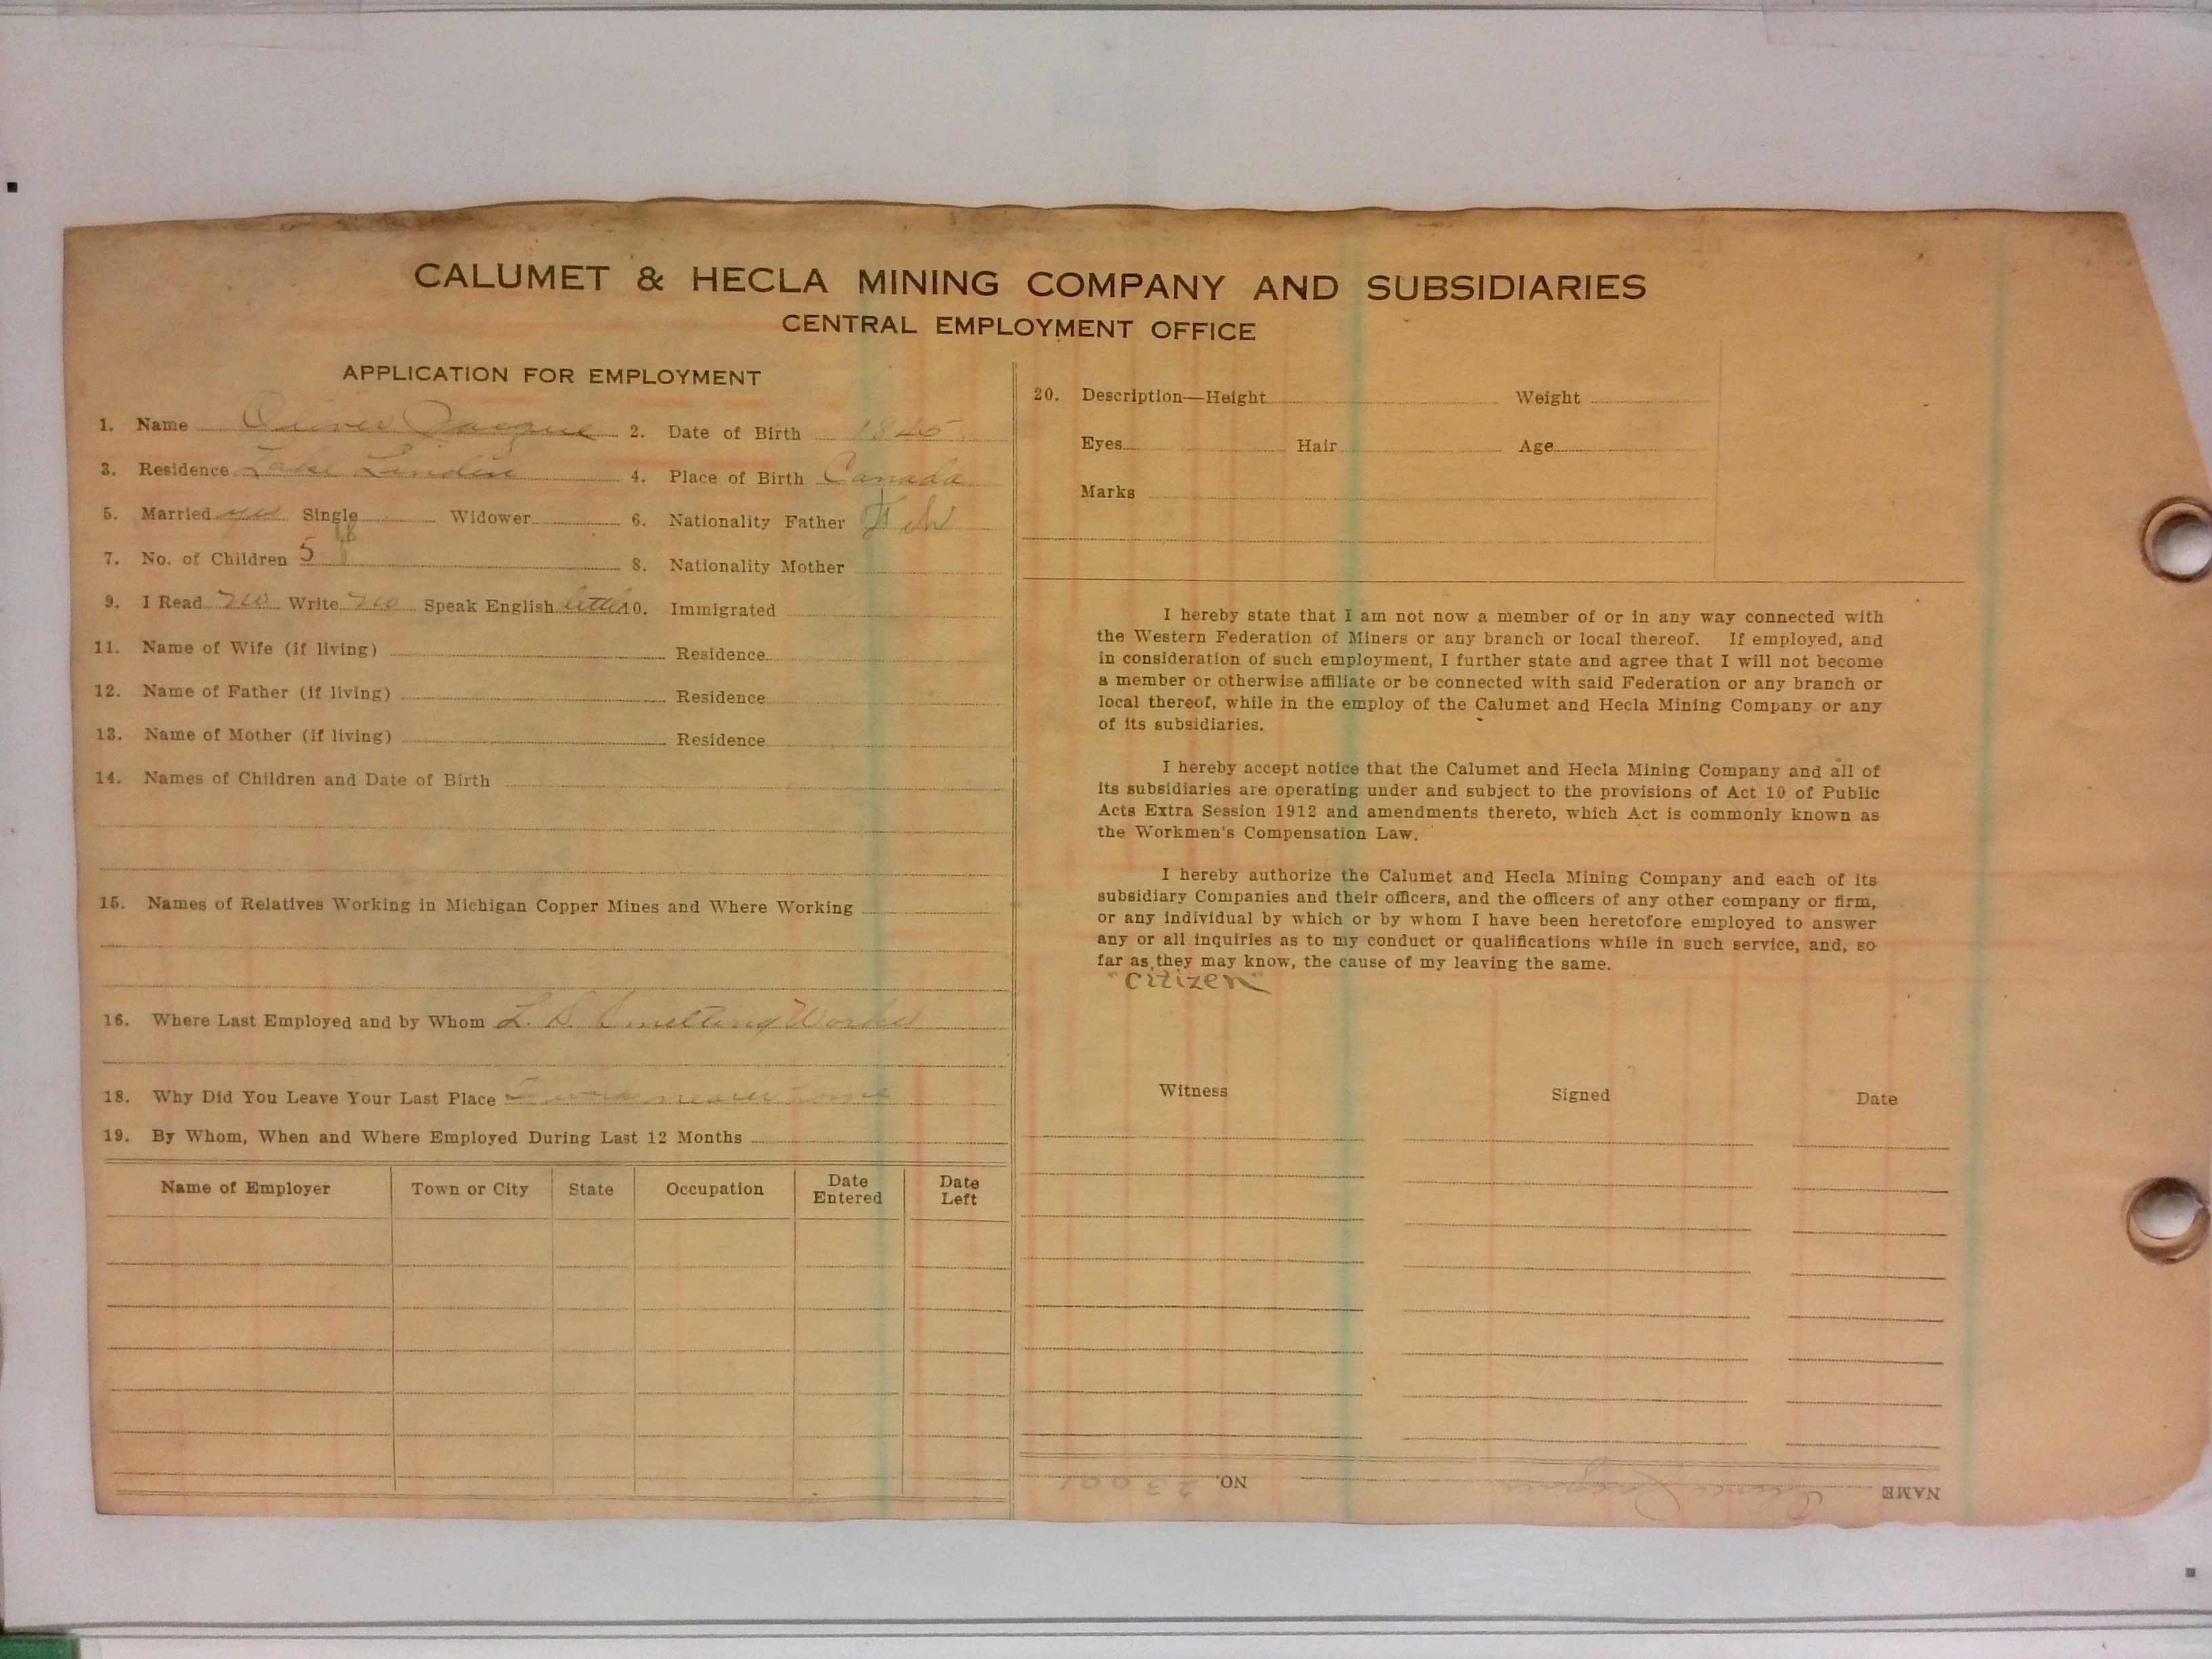 CALUMET & HECLA MINING COMPANY AND SUBSIDIARIES
CENTRAL EMPLOYMENT OFFICE
APPLICATION FOR EMPLOYMENT
1. Name Oliver Jacque 2. Date of Birth 1845
3. Residence Lake Linden 4. Place of Birth Canada
5. Married yes Single Widower 6. Nationality Father
7. No. of Children 5 8. Nationality Mother
9. I Read no Write no Speak English little 10. Immigrated
11. Name of Wife (if living) Residence
12. Name of Father (if living) Residence
13. Name of Mother (if living) Residence
14. Names of Children and Date of Birth
15. Names of Relatives Working in Michigan Copper Mines and Where Working
16. Where Last Employed and by Whom L. S. Smelting Works
18. Why Did You Leave Your Last Place To work nearer home
19. By Whom, When and Where Employed During Last 12 Months
Name of Employer Town or City State Occupation Date Entered Date Left
20. Description—Height Weight
Eyes Hair Age
Marks
I hereby state that I am not now a member of or in any way connected with
the Western Federation of Miners or any branch or local thereof. If employed, and
in consideration of such employment, I further state and agree that I will not become
a member or otherwise affiliate or be connected with said Federation or any branch or
local thereof, while in the employ of the Calumet and Hecla Mining Company or any
of its subsidiaries.
I hereby accept notice that the Calumet and Hecla Mining Company and all of
its subsidiaries are operating under and subject to the provisions of Act 10 of Public
Acts Extra Session 1912 and amendments thereto, which Act is commonly known as
the Workmen's Compensation Law.
I hereby authorize the Calumet and Hecla Mining Company and each of its
subsidiary Companies and their officers, and the officers of any other company or firm,
or any individual by which or by whom I have been heretofore employed to answer
any or all inquiries as to my conduct or qualifications while in such service, and, so
far as they may know, the cause of my leaving the same.
"Citizen"
Witness Signed Date
NAME Oliver Jacque NO.